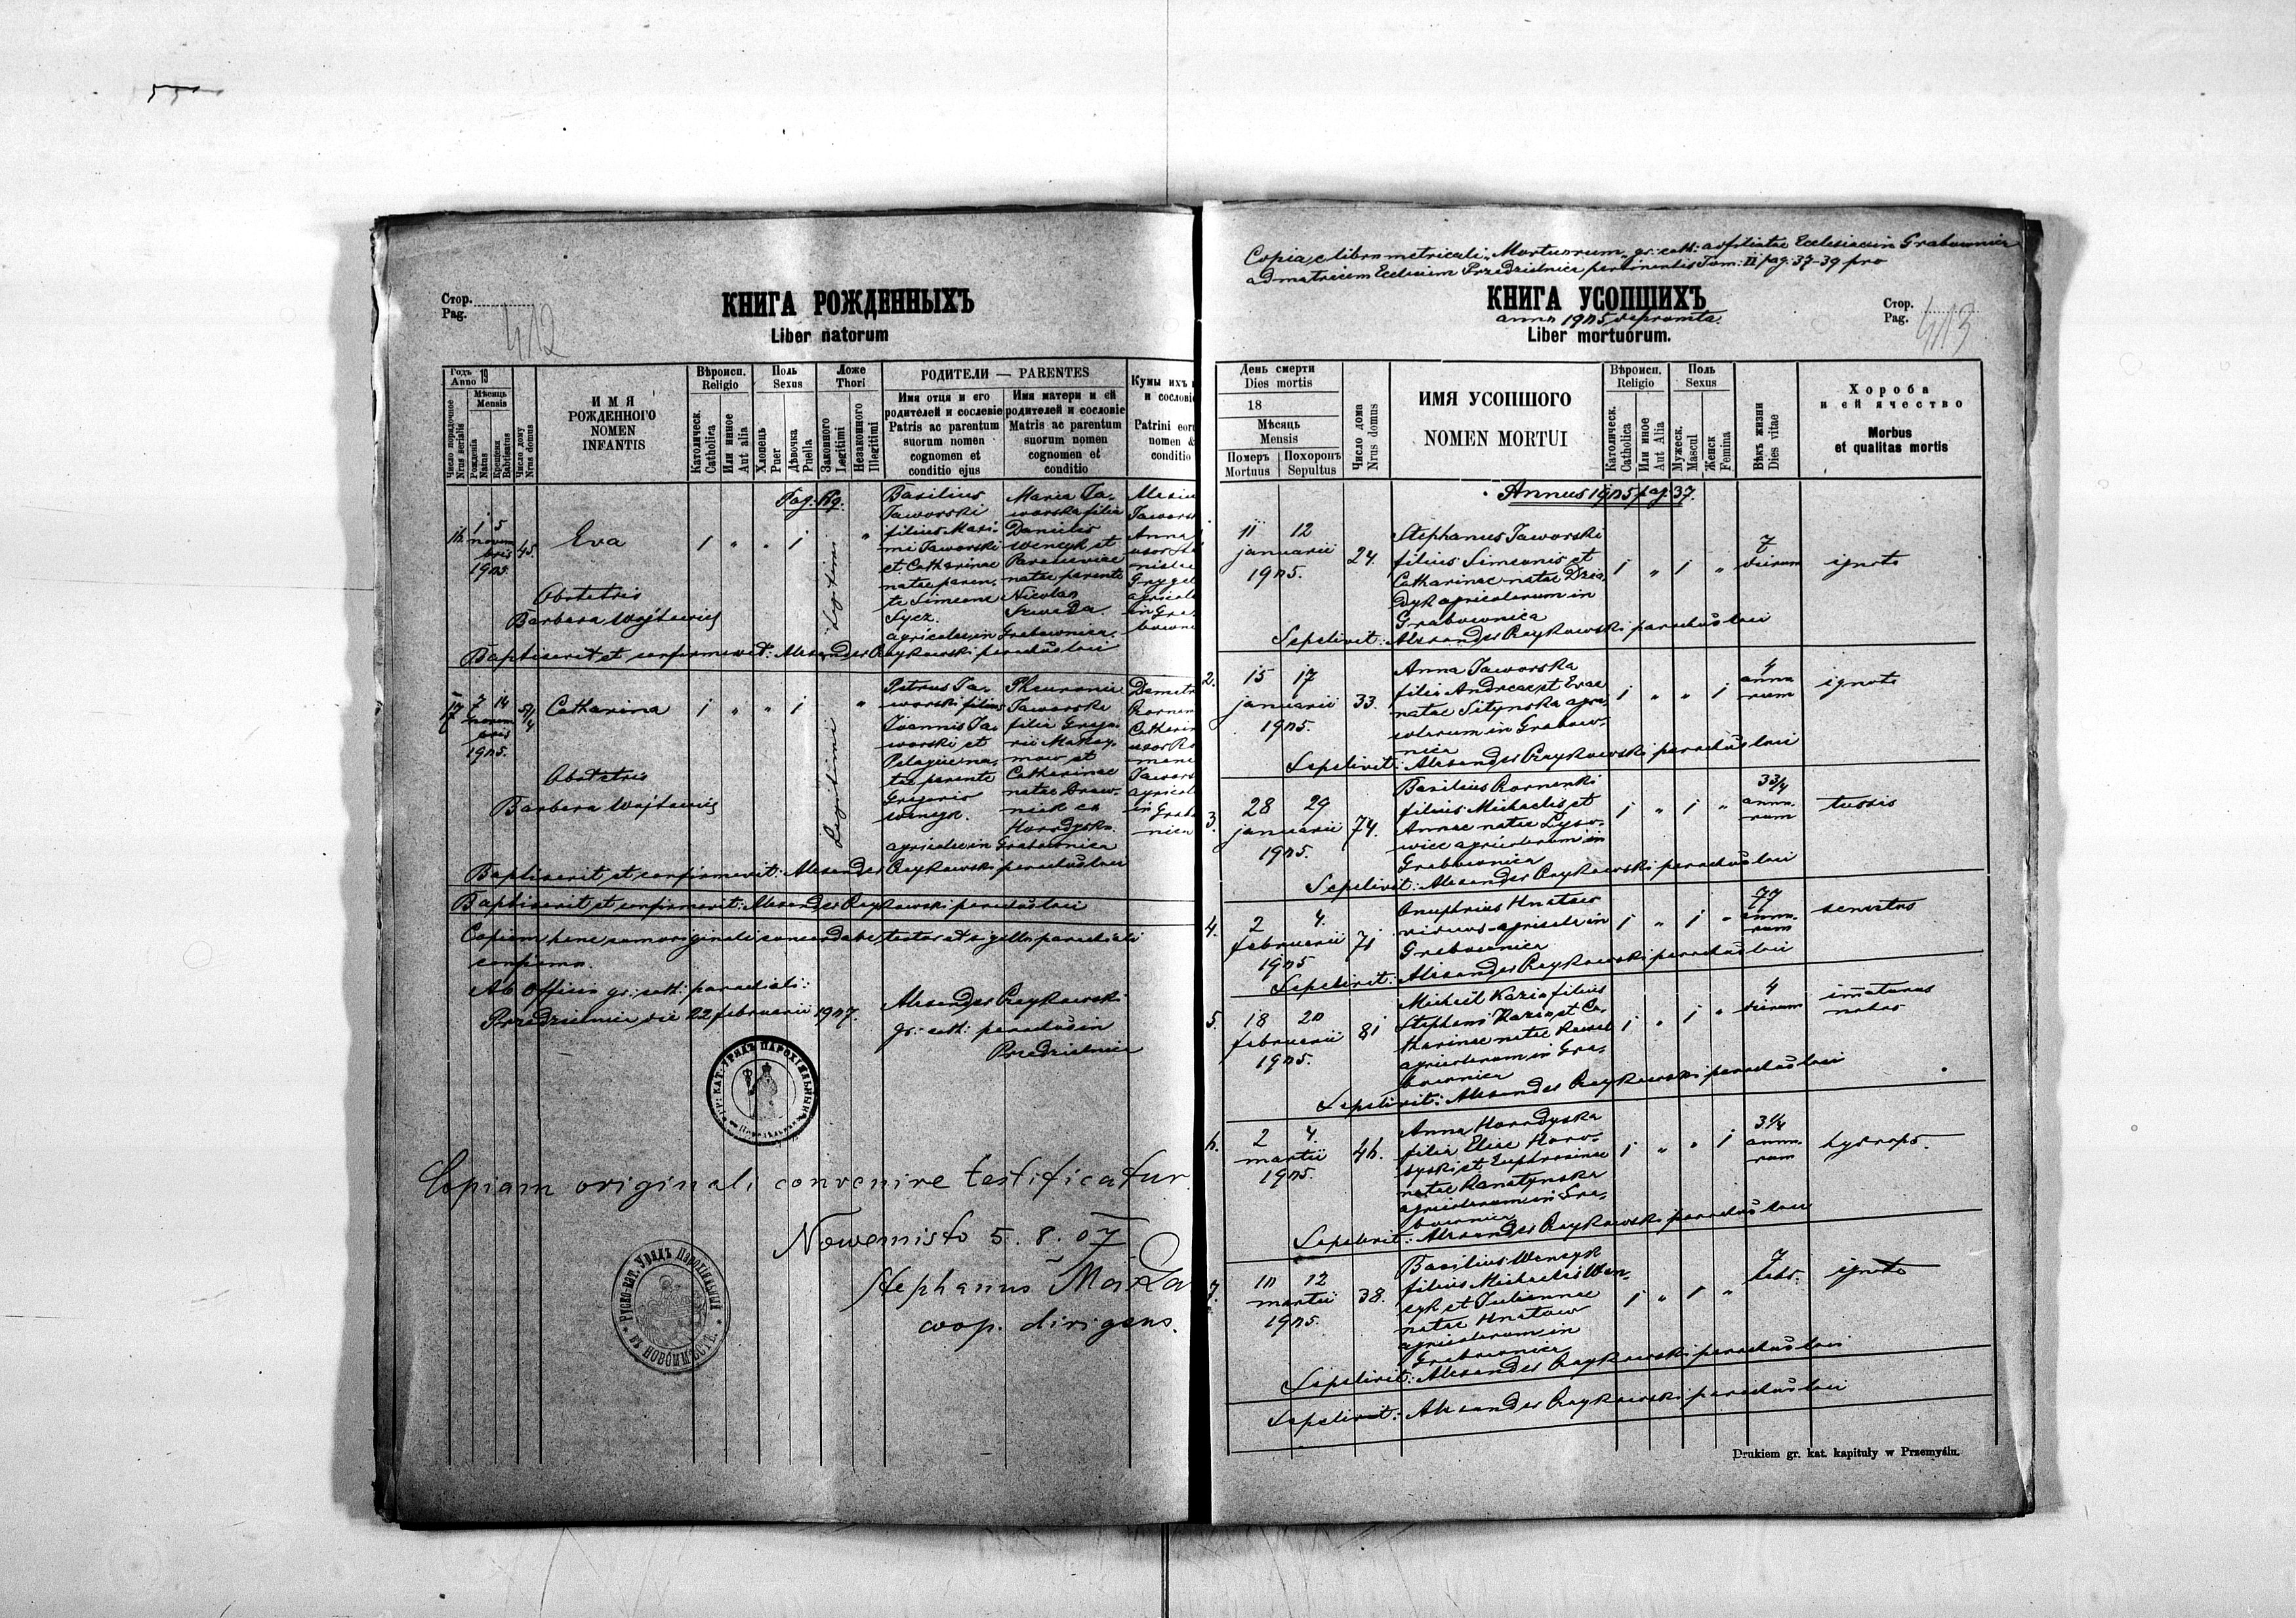 Стор.
Pag.
412
КНИГА РОЖДЕННЫХЪ
Liber natorum
Годъ
Anno 19
Мѣсяць
Mensis
Число порядочное
Nrus serialis
Рожденія
Natus
Крещенія
Babtisatus
Число дому
Nrus domus
ИМЯ
РОЖДЕННОГО
NOMEN
INFANTIS
Вѣроисп.
Religio
Католическ.
Catholica
Или инное
Aut alia
Поль
Sexus
Хлопець
Puer
Дѣвочка
Puella
Ложе
Thori
Законного
Legitimi
Незаконного
Illegitimi
РОДИТЕЛИ — PARENTES
Имя отця и его
родителей и сословіе
Patris ac parentum
suorum nomen
cognomen et
conditio ejus
Имя матери и ей
родителей и сословіе
Matris ac parentum
suorum nomen
cognomen et
conditio
Кумы ихъ
и сословіе
Patrini eoru
nomen &
conditio
Pag: 89.
1 5
novem
bris
1905.
45.
Eva
1 „ „ 1
Legitimi
„
Basilius
Jaworski
filius Maxi-
mi Jaworski
et Catharinae
natae paren-
te Simeone
Sycz.
agricolae in Grabownica.
Maria Ja-
worska filia
Danielis
Wencyk et
Parasceviae
natae parente
Nicolao
Szweda
Obstetrix
Barbara Wojtowicz
Baptisavit et confirmavit: Alexander Czaykowski parochus loci
17
7 14
novem
bris
1905.
Catharina
1 „ „ 1
Legitimi
„
Petrus Ja-
worski filius
Joannis Ja-
worski et
Pelagiae na-
tae parente
Gregorio
Wencyk.
agricolae in Grabownica
Jaworska
filia Grego-
rii
et
Catharinae
natae
Obstetrix
Barbara Wojtowicz
Baptisavit et confirmavit: Alexander Czaykowski parochus loci
Baptisavit et confirmavit: Alexander Czaykowski parochus loci
Copiam hanc cum originali concordare testor et sigillo parochiali
confirmo.
Ab Officio gr: cath: parochiali:
Przedzielnica die 22 februarii 1907.
Alexander Czaykowski
gr: cath: parochus in
Przedzielnica
Copiam originali convenire testificatur.
Nowemisto 5. 8. 07
Stephanus
coop. dirigens.
РУСКО КАТ. УРЯДЪ ПАРОХІЯЛЬНЫЙ
ВЪ НОВОМЪМѢСТѢ.
Copia e libro metricali „Mortuorum„ gr: cath: ad filialem Ecclesiam in Grabownica
ad matricem Ecclesiam Przedzielnica pertinentis Tom: II pag: 37-39 pro
КНИГА УСОПШИХЪ
anno 1905 deprompta.
Liber mortuorum.
Стор.
Pag.
413
День смерти
Dies mortis
18
Мѣсяць
Mensis
Померъ
Mortuus
Похоронъ
Sepultus
Число дома
Nrus domus
ИМЯ УСОПШОГО
NOMEN MORTUI
Вѣроисп.
Religio
Католическ.
Catholica
Или иное
Aut Alia
Поль
Sexus
Мужеск.
Mascul
Женск
Femina
Вѣкъ жизни
Dies vitae
Хороба
и ей ячество
Morbus
et qualitas mortis
Annus 1905 pag: 37.
11 12
januarii
1905.
24.
Stephanus Jaworski
filius Simeonis et
Catharinae natae Dzia-
dyk agricolarum in
Grabownica
1 „ 1 „
7
dierum
ignota
Sepelivit: Alexander Czaykowski parochus loci
2.
15 17
januarii
1905.
33.
Anna Jaworska
filia Andreae et Evae
natae Sitynska agri-
colarum in Grabow-
nica
1 „ „ 1
4
anno-
rum
ignota
Sepelivit: Alexander Czaykowski parochus loci
3.
28 29
januarii
1905.
74.
Basilius Kornenki
filius Michaelis et
Annae natae Lyso-
wicz agricolarum in
Grabownica
1 „ 1 „
3 3/4
anno-
rum
tussis
Sepelivit: Alexander Czaykowski parochus loci
4.
2 4.
februarii
1905
71
Onuphrius Hnatow
viduus agricola in
Grabownica
1 „ 1 „
77
anno-
rum
senectus
Sepelivit: Alexander Czaykowski parochus loci
5.
18 20
februarii
1905.
81
Michaël Kazio filius
Stephani Kazio et Ca-
tharinae natae
agricolarum in Gra-
bownica
1 „ 1 „
4
dierum
immaturus
natus
Sepelivit: Alexander Czaykowski parochus loci
6.
2 4.
martii
1905.
46.
Anna Horodyska
filia Eliae Horo-
dyski et Euphrosinae
natae
agricolarum in Gra-
bownica
1 „ „ 1
3 1/4
anno-
rum
hydrops.
Sepelivit: Alexander Czaykowski parochus loci
7.
10 12
martii
1905.
38.
Basilius Wencyk
filius Michaelis Wen-
cyk et Juliannae
natae Hnatow
agricolarum in
Grabownica
1 „ 1 „
7
hebd.
ignota
Sepelivit: Alexander Czaykowski parochus loci
Sepelivit: Alexander Czaykowski parochus loci
Drukiem gr. kat. kapituły w Przemyślu.